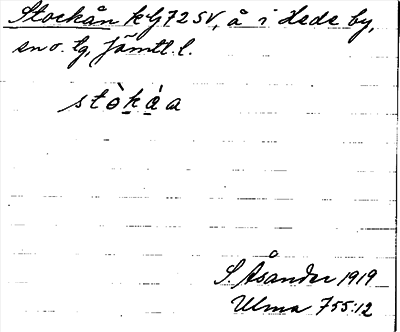 Stockån kbl 72 SV, å i Hede by,
sn o. tg, Jämtl. l.
stò̱ḵá̱a
S. Åsander 1919
Ulma 755:12